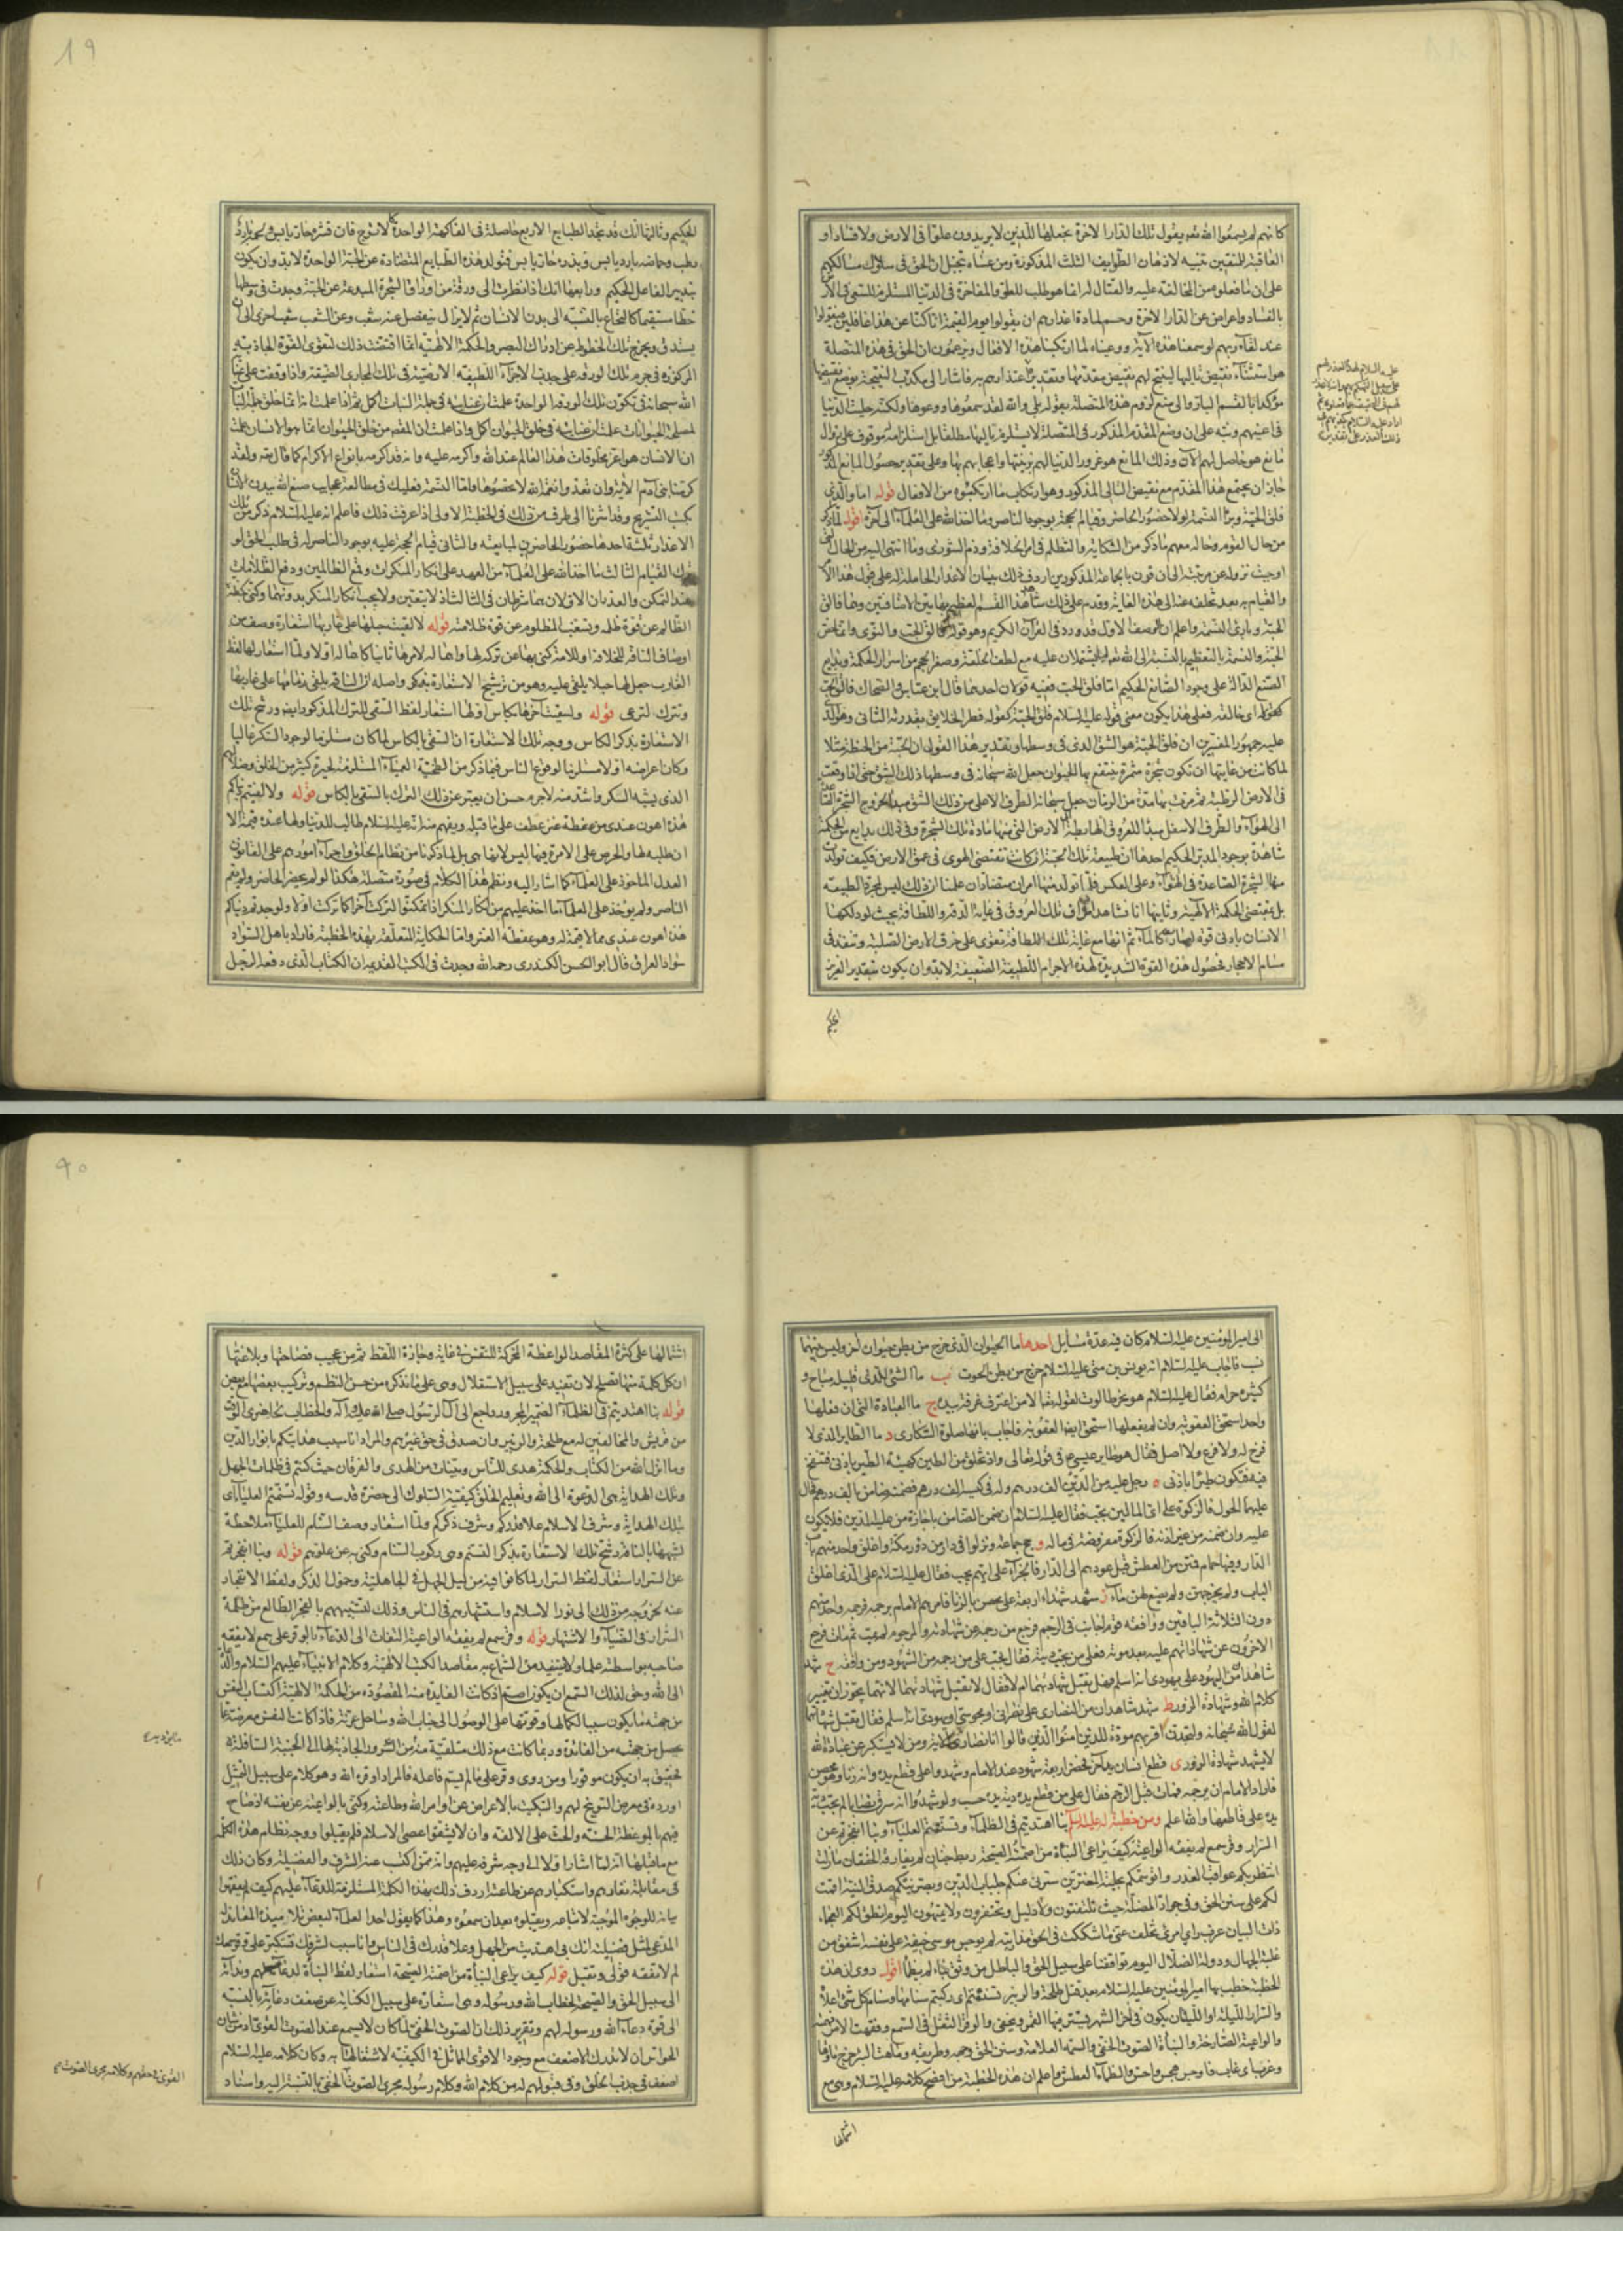 كانهم لم يسمعوا الله تعالى يقول تلك الدار الاخرة نجعلها للذين لا يريدون علوا فى الارض ولا فسادا و
العاقبة للمتقين تنبيه لاذهان الطوايف الثلث المذكورة ومن عساه تخيل ان الحق فى سلوك مسالكهم
على ان ما فعلوه من المخالفة عليه والقتال له انما هو طلب للعلو والمفاخرة فى الدنيا المستلزم للسعى فى الارض
بالفساد واعراض عن الدار الاخرة وحسم لمادة اعذارهم ان يقولوا يوم القيمة انا كنا عن هذا غافلين
عند لقاء ربهم لو سمعنا هذه الاية ووعيناه لما ارتكبنا هذه الافعال ويزعمون ان الحق فى هذه المتصلة
هو استثناء نقيض تاليها لينتج لهم نقيض مقدمها وتقدير اعتذارهم به فاشار الى مكذب النتيجة بوضع نقيضها
مؤكدا بالقسم البار والى منع لزوم هذه المتصلة بقوله بلى والله لقد سمعوها ووعوها ولكنه حليت الدنيا
فى اعينهم ونبه على ان وضع المقدم المذكور فى المتصلة لا يستلزم تاليها مطلقا بل استلزامه موقوف على زوال
مانع هو حاصل لهم الان وذلك المانع هو غرور الدنيا لهم بزينتها واعجابهم بها وعلى تقدير حصول المانع المذكور
جاز ان يجتمع هذا المقدم مع نقيض التالى المذكور وهو ارتكاب ما ارتكبوه من الافعال قوله اما والذى
فلق الحبة وبرأ النسمة لولا حضور الحاضر وقيام الحجة بوجود الناصر وما اخذ الله على العلماء الى آخره اقول لما ذكر
من حال القوم وحاله معهم ما ذكر من الشكاية والتظلم فى امر الخلافة وذم الشورى وما انتهى اليه من الحال التى
اوجبت نزوله عن مرتبته الى ان قرن بالجماعة المذكورين اردف ذلك ببيان الاعذار الحاملة له على قبول هذا الامر
والقيام به بعد تخلفه عنه الى هذه الغاية وقدم على ذلك شاهدا القسم العظيم بهاتين الاضافتين وهما فالق
الحبة وبارئ النسمة واعلم ان الوصف الاول قد ورد فى القرآن الكريم وهو قوله فالق الحب والنوى وانما خص
الحبة والنسمة بالتعظيم بالنسبة الى الله تعالى لما يشتملان عليه مع لطف الخلقة وصغر الحجم من اسرار الحكمة وبدايع
الصنع الدالة على وجود الصانع الحكيم اما فلق الحبة ففيه قولان احدهما قال ابن عباس والضحاك فالق الحب
كقوله اى خالقه فعلى هذا يكون معنى قوله عليه السلام فلق الحبة كقوله فطر الخلايق بقدرته الثانى وهو الذى
عليه جمهور المفسرين ان فلق الحبة هو الشق الذى فى وسطها وتقدير هذا القول ان الحبة من الحنطة مثلا
لما كانت من غايتها ان تكون شجرة مثمرة ينتفع بها الحيوان جعل الله سبحانه فى وسطها ذلك الشق حتى اذا وقعت
فى الارض الرطبة ثم مرت بها مدة من الزمان جعل سبحانه الطرف الاعلى من ذلك الشق مبدأ لخروج الشجرة الصاعدة
الى الهواء والطرف الاسفل مبدأ للعروق الهابطة فى الارض التى منها مادة تلك الشجرة وفى ذلك بدايع من الحكمة
شاهدة بوجود المدبر الحكيم احدها ان طبيعة تلك الحبة ان كانت تقتضى الهوى فى عمق الارض فكيف تولدت
منها الشجرة الصاعدة فى الهواء وعلى العكس فلما تولد منها امران متضادان علمنا ان ذلك ليس لمجرد الطبيعة
بل بمقتضى الحكمة الالهية وثانيها انا نشاهد اطراف تلك العروق فى غاية الدقة واللطافة بحيث لو دلكها
الانسان بادنى قوة لصارت كالماء ثم انها مع غاية تلك اللطافة تقوى على خرق الارض الصلبة وتنفذ فى
مسام الاحجار فحصول هذه القوة الشديدة لهذه الاجرام اللطيفة الضعيفة لابد وان يكون بتقدير العزيز
الحكيم
الحكيم وثالثها انك قد تجد الطبايع الاربع حاصلة فى الفاكهة الواحدة كالاترج فان قشره حار يابس ولحمه بارد
رطب وحماضه بارد يابس وبذره حار يابس فتولد هذه الطبايع المتضادة عن الحبة الواحدة لابد وان يكون
بتدبير الفاعل الحكيم ورابعها انك اذا نظرت الى ورقة من اوراق الشجرة المبدوعة عن الحبة وجدت فى وسطها
خطا مستقيما كالنخاع بالنسبة الى بدن الانسان ثم لا يزال ينفصل عنه شعب وعن الشعب شعب اخرى الى ان
يستدق ويخرج تلك الخطوط عن ادراك البصر والحكمة الالهية انما اقتضت ذلك لتقوى القوة الجاذبة
المركوزة فى جرم تلك الورقة على جذب الاجزاء اللطيفة الارضية فى تلك المجارى الضيقة واذا وقفت على عناية
الله سبحانه فى تكون تلك الورقة الواحدة علمت ان عنايته فى جملة النبات اكمل ثم اذا علمت انه انما خلق جملة النبات
لمصلحة الحيوانات علمت ان عنايته فى خلق الحيوان اكمل واذا علمت ان المقصود من خلق الحيوان انما هو الانسان علمت
ان الانسان هو اعز مخلوقات هذا العالم عند الله واكرمه عليه وانه قد اكرمه بانواع الاكرام كما قال تعالى ولقد
كرمنا بنى آدم الاية وان تعدوا نعمة الله لا تحصوها واما النسمة فعليك فى مطالعة عجايب صنع الله ببدن الانسان
بكتب التشريح وقد اشرنا الى طرف من ذلك فى الخطبة الاولى اذا عرفت ذلك فاعلم انه عليه السلام ذكر من تلك
الاعذار ثلثة احدها حضور الحاضرين لمبايعته والثانى قيام الحجة عليه بوجود الناصر له فى طلب الحق لو
ترك القيام الثالث ما اخذ الله على العلماء من العهد على انكار المنكرات وقمع الظالمين ودفع الظلامات
عند التمكن والعذران الاولان هما شرطان فى الثالث اذ لا يتعين ولا يجب انكار المنكر بدونهما وكنى بكظة
الظالم عن قوة ظلمه وبسغب المظلوم عن قوة ظلامته قوله لالقيت حبلها على غاربها استعارة وصف من
اوصاف الناقة للخلافة او للامة كنى بها عن تركه لها واهماله لامرها ثانيا كاهماله اولا ولما استعار لها لفظ
الغارب جعل لها حبلا يلقى عليه وهو من ترشيح الاستعارة بذكر واصله ان الناقة يلقى زمامها على غاربها
وتترك لترعى قوله ولسقيت آخرها بكاس اولها استعار لفظ السقى للترك المذكور ايضا ورشح تلك
الاستعارة بذكر الكاس ووجه تلك الاستعارة ان السقى بالكاس لما كان مستلزما لوجود السكر غالبا
وكان اعراضه اولا مستلزما لوقوع الناس فيما ذكر من الطخية العمياء المستلزمة لحيرة كثير من الخلق وضلالهم
الذى يشبه السكر واشد منه لا جرم حسن ان يعبر عن ذلك الترك بالسقى بالكاس قوله ولالفيتم دنياكم
هذه اهون عندى من عفطة عنز عطف على ما قبله ويفهم منه انه عليه السلام طالب للدنيا ولها عنده قيمة الا
ان طلبه لها والحرص على الامرة فيها ليس لانها هى بل لما ذكرنا من نظام الخلق واجراء امورهم على القانون
العدل الماخوذ على العلماء كما اشار اليه ونظم هذا الكلام فى صورة متصلة هكذا لو لم يحضر الحاضر ولم يقم
الناصر ولم يؤخذ على العلماء ما اخذ عليهم من انكار المنكر اذا تمكنوا لتركت آخرا كما تركت اولا ولوجدتم دنياكم
هذه اهون عندى مما لا قيمة له وهو عفطة العنز واما الحكاية المتعلقة بهذه الخطبة فاراد باهل السواد
سواد العراق قال ابو الحسن الكيدرى رحمه الله وجدت فى الكتب القديمة ان الكتاب الذى دفعه الرجل
الى امير المؤمنين عليه السلام كان فيه عدة مسايل احدها ما الحيوان الذى خرج من بطن حيوان آخر وليس بينهما
نسب فاجاب عليه السلام انه يونس بن متى عليه السلام خرج من بطن الحوت ب ما الشئ الذى قليله مباح و
كثيره حرام فقال عليه السلام هو نهر طالوت لقوله تعالى الا من اغترف غرفة بيده ج ما العبادة التى ان فعلها
واحد استحق العقوبة وان لم يفعلها استحق ايضا العقوبة فاجاب بانها صلوة السكارى د ما الطاير الذى لا
فرخ له ولا فرع ولا اصل فقال هو طاير عيسى ع فى قوله تعالى واذ تخلق من الطين كهيئة الطير باذنى فتنفخ
فيه فتكون طيرا باذنى ه رجل عليه من الدين الف درهم وله فى كيسه الف درهم فضمنه ضامن بالف درهم فحال
عليهما الحول فالزكوة على اى المالين يجب فقال عليه السلام ان ضمن الضامن باجازة من عليه الدين فلا يكون
عليه وان ضمنه من غير اذنه فالزكوة مفروضة فى ماله و حج جماعة ونزلوا فى دار من دور مكة واغلق واحد منهم باب
الدار وفيها حمام فمتن من العطش قبل عودهم الى الدار فالجزاء على ايهم يجب فقال عليه السلام على الذى اغلق
الباب ولم يخرجهن ولم يضع لهن ماء ز شهد شهداء اربعة على محصن بالزنا فامرهم الامام برجمه فرجمه واحد منهم
دون الثلاثة الباقين ووافقه قوم اجانب فى الرجم فرجع من رجمه عن شهادته والمرجوم لم يمت ثم مات فرجع
الاخرون عن شهاداتهم عليه بعد موته فعلى من يجب ديته فقال يجب على من رجمه من الشهود ومن وافقه ح شهد
شاهدان من اليهود على يهودى انه اسلم فهل تقبل شهادتهما ام لا فقال لا تقبل شهادتهما لانهما يجوزان تغيير
كلام الله وشهادة الزور ط شهد شاهدان من النصارى على نصرانى او مجوسى او يهودى انه اسلم فقال تقبل شهادتهما
لقول الله سبحانه ولتجدن اقربهم مودة للذين امنوا الذين قالوا انا نصارى الاية ومن لا يستكبر عن عبادة الله
لا يشهد شهادة الزور ى قطع انسان يد آخر فحضر اربعة شهود عند الامام وشهدوا على قطع يده وانه زنا وهو محصن
فاراد الامام ان يرجمه فمات قبل الرجم فقال على من قطع يده دية يده حسب ولو شهدوا انه سرق نصابا لم يجب دية
يده على قاطعها والله اعلم ومن خطبة له عليه السلم بنا اهتديتم فى الظلماء وتسنمتم العلياء وبنا انفجرتم عن
السرار وقر سمع لم يفقه الواعية كيف يراعى النبأة من اصمته الصيحة ربط جنان لم يفارقه الخفقان ما زلت
انتظر بكم عواقب الغدر واتوسمكم بحلية المغترين سترنى عنكم جلباب الدين وبصرنيكم صدق النية اقمت
لكم على سنن الحق فى جواد المضلة حيث تلتقون ولا دليل وتحتفرون ولا تميهون اليوم انطق لكم العجماء
ذات البيان عزب راى امرئ تخلف عنى ما شككت فى الحق مذ اريته لم يوجس موسى خيفة على نفسه اشفق من
غلبة الجهال ودول الضلال اليوم تواقفنا على سبيل الحق والباطل من وثق بماء لم يظمأ اقول روى ان هذه
الخطبة خطب بها امير المؤمنين عليه السلام بعد قتل طلحة والزبير تسنمتم اى ركبتم سنامها وسنام كل شئ اعلاه
والسرار الليلة او الليلتان يكون فى آخر الشهر يستتر فيها القمر ويخفى والوقر الثقل فى السمع وفقهت الامر فهمته
والواعية الصارخة والنبأة الصوت الخفى والسمة العلامة وسنن الحق وجهه وطريقه وماهت البئر خرج ماؤها
وعزب اى غاب واوجس هجس واحس والظماء العطش واعلم ان هذه الخطبة من افصح كلامه عليه السلام وهى مع
اشتمالها
اشتمالها على كثرة المقاصد الواعظة المحركة للنفس فى غاية وجازة اللفظ ثم من عجيب فصاحتها وبلاغتها
ان كل كلمة منها تصلح لان تفيد على سبيل الاستقلال وهى على ما نذكره من حسن النظم وتركيب بعضها مع بعض
قوله بنا اهتديتم فى الظلماء الضمير المجرور راجع الى آل الرسول صلى الله عليه وآله والخطاب لحاضرى الوقت
من قريش والمخالفين له مع طلحة والزبير وان صدق فى حق غيرهم والمراد انا سبب هدايتكم بانوار الدين
وما انزل الله من الكتاب والحكمة هدى للناس وبينات من الهدى والفرقان حيث كنتم فى ظلمات الجهل
وتلك الهداية هى الدعوة الى الله وتعليم الخلق كيفية السلوك الى حضرة قدسه وقوله تسنمتم العلياء اى
بتلك الهداية وشرف الاسلام علا قدركم وشرف ذكركم ولما استعار وصف السنام للعلياء ملاحظة
لشبهها بالناقة رشح تلك الاستعارة بذكر التسنم وهى ركوب السنام وكنى به عن علوهم قوله وبنا انفجرتم
عن السرار استعار لفظ السرار لما كانوا فيه من ليل الجهل فى الجاهلية وخمول الذكر ولفظ الانفجار
عنه لخروجهم من ذلك الى نور الاسلام واستشهارهم فى الناس وذلك لتشبيههم بالفجر الطالع من ظلمة
السرار فى الضياء والاشتهار قوله وقر سمع لم يفقه الواعية التفات الى الدعاء بالوقر على سمع لا يفقه
صاحبه بواسطته علما ولا يستفيد من السماع به مقاصد الكتب الالهية وكلام الانبياء عليهم السلام والدعاة
الى الله وحق لذلك السمع ان يكون اصم اذ كانت الفايدة منه المقصودة من الحكمة الالهية اكتساب النفس
من جهته ما يكون سببا لكمالها وقوتها على الوصول الى جناب الله وساحل عزته فاذا كانت النفس معرضة عما
يحصل من جهته من الفايدة وربما كانت مع ذلك متلقية منه من الشرور الجاذبة لها الى الجنبة السافلة
فحقيق به ان يكون موقورا ومن روى وقر على ما لم يسم فاعله فالمراد اوقره الله وهو كلام على سبيل التمثيل
اورده فى معرض التوبيخ لهم والتبكيت بالاعراض عن اوامر الله وطاعته وكنى بالواعية عن نفسه اذ صاح
فيهم بالموعظة الحسنة والحث على الالفة وان لا يشقوا عصى الاسلام فلم يقبلوا ووجه نظام هذه الكلمة
مع ما قبلها انه لما اشار اولا الى وجه شرفه عليهم وانه ممن اكتسب عنه الشرف والفضيلة وكان ذلك
فى مقابلة نفارهم واستكبارهم عن طاعته اردف ذلك بهذه الكلمة المستلزمة للدعاء عليهم كيف لم يفقهوا
بيانه للوجوه الموجبة لاتباعه ويقبلوه بعد ان سمعوه وهذا كما يقول احد العلماء لبعض تلاميذه المعاند له
المدعى لمثل فضيلته انك بى اهتديت من الجهل وعلا قدرك فى الناس وانا سبب لشرفك فتتكبر على وقر سمعك
لم لا تفقه قولى وتقبل قوله كيف يراعى النبأة من اصمته الصيحة استعار لفظ النبأة لدعائه لهم وندائه
الى سبيل الحق والصيحة لخطاب الله ورسوله وهى استعارة على سبيل الكناية عن ضعف دعائه بالنسبة
الى قوة دعاء الله ورسوله لهم وتقرير ذلك ان الصوت الخفى لما كان لا يسمع عند الصوت القوى اذ من شان
الحواس ان لا تدرك الاضعف مع وجود الاقوى المماثل فى الكيفية لاشتغالها به وكان كلامه عليه السلام
اضعف فى جذب الخلق وفى قبولهم له من كلام الله وكلام رسوله مجرى الصوت الخفى بالنسبة اليه واسناد
القوى فى حقهم وكلامه مجرى الصوت